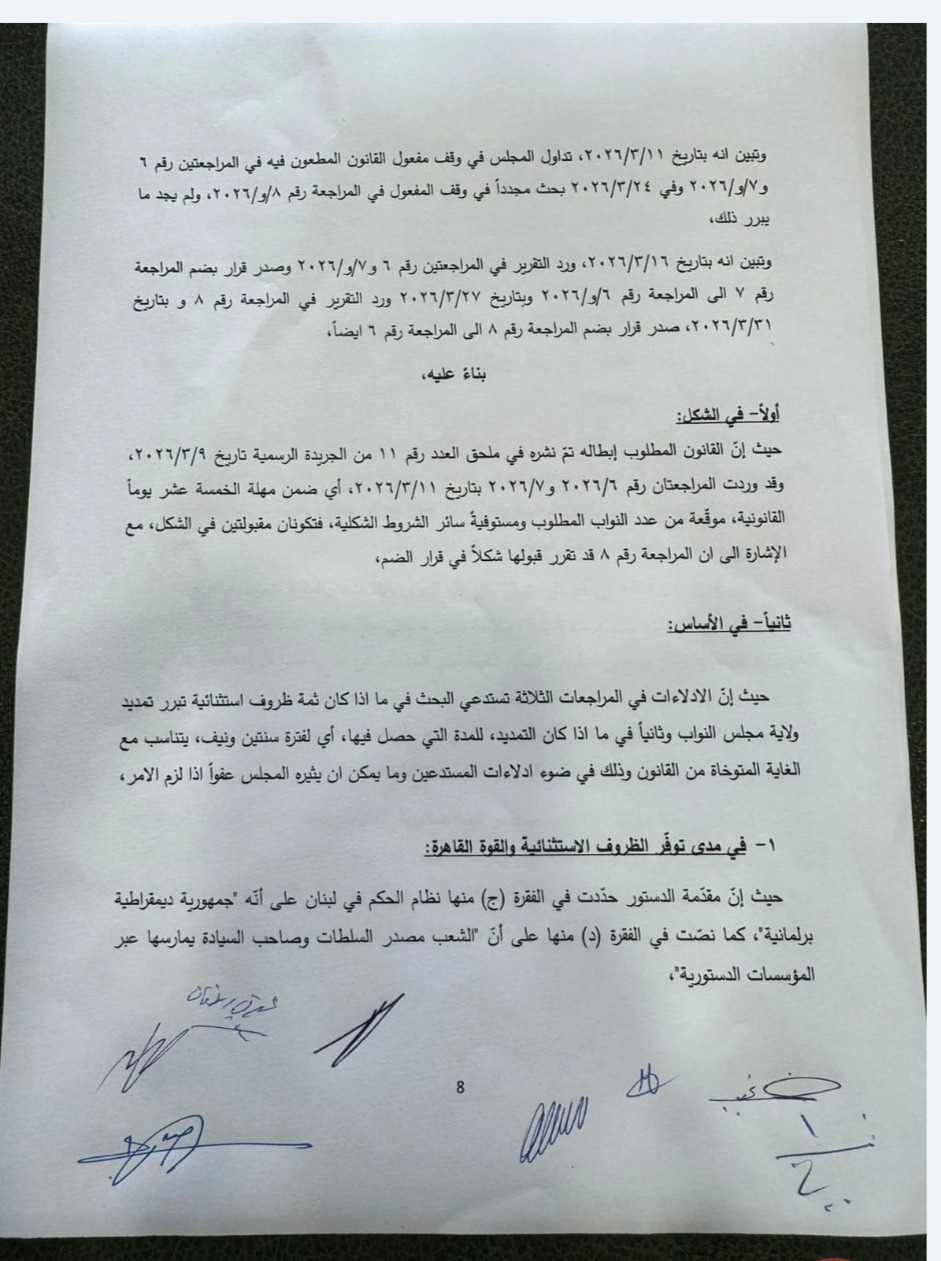 وتبين انه بتاريخ ٢٠٢٦/٣/١١، تداول المجلس في وقف مفعول القانون المطعون فيه في المراجعتين رقم ٦
و٧/و/٢٠٢٦ وفي ٢٠٢٦/٣/٢٤ بحث مجدداً في وقف المفعول في المراجعة رقم ٨/و/٢٠٢٦، ولم يجد ما
يبرر ذلك،
وتبين انه بتاريخ ٢٠٢٦/٣/١٦، ورد التقرير في المراجعتين رقم ٦ و٧/و/٢٠٢٦ وصدر قرار بضم المراجعة
رقم ٧ الى المراجعة رقم ٦/و/٢٠٢٦ وبتاريخ ٢٠٢٦/٣/٢٧ ورد التقرير في المراجعة رقم ٨ و بتاريخ
٢٠٢٦/٣/٣١، صدر قرار بضم المراجعة رقم ٨ الى المراجعة رقم ٦ ايضاً،
بناءً عليه،
أولاً– في الشكل:
حيث إنّ القانون المطلوب إبطاله تمّ نشره في ملحق العدد رقم ١١ من الجريدة الرسمية تاريخ ٢٠٢٦/٣/٩،
وقد وردت المراجعتان رقم ٢٠٢٦/٦ و٢٠٢٦/٧ بتاريخ ٢٠٢٦/٣/١١، أي ضمن مهلة الخمسة عشر يوماً
القانونية، موقّعة من عدد النواب المطلوب ومستوفيةً سائر الشروط الشكلية، فتكونان مقبولتين في الشكل، مع
الإشارة الى ان المراجعة رقم ٨ قد تقرر قبولها شكلاً في قرار الضم،
ثانياً– في الأساس:
حيث إنّ الادلاءات في المراجعات الثلاثة تستدعي البحث في ما اذا كان ثمة ظروف استثنائية تبرر تمديد
ولاية مجلس النواب وثانياً في ما اذا كان التمديد، للمدة التي حصل فيها، أي لفترة سنتين ونيف، يتناسب مع
الغاية المتوخاة من القانون وذلك في ضوء ادلاءات المستدعين وما يمكن ان يثيره المجلس عفواً اذا لزم الامر،
١– في مدى توفّر الظروف الاستثنائية والقوة القاهرة:
حيث إنّ مقدّمة الدستور حدّدت في الفقرة (ج) منها نظام الحكم في لبنان على أنّه "جمهورية ديمقراطية
برلمانية"، كما نصّت في الفقرة (د) منها على أنّ "الشعب مصدر السلطات وصاحب السيادة يمارسها عبر
المؤسسات الدستورية"،
8